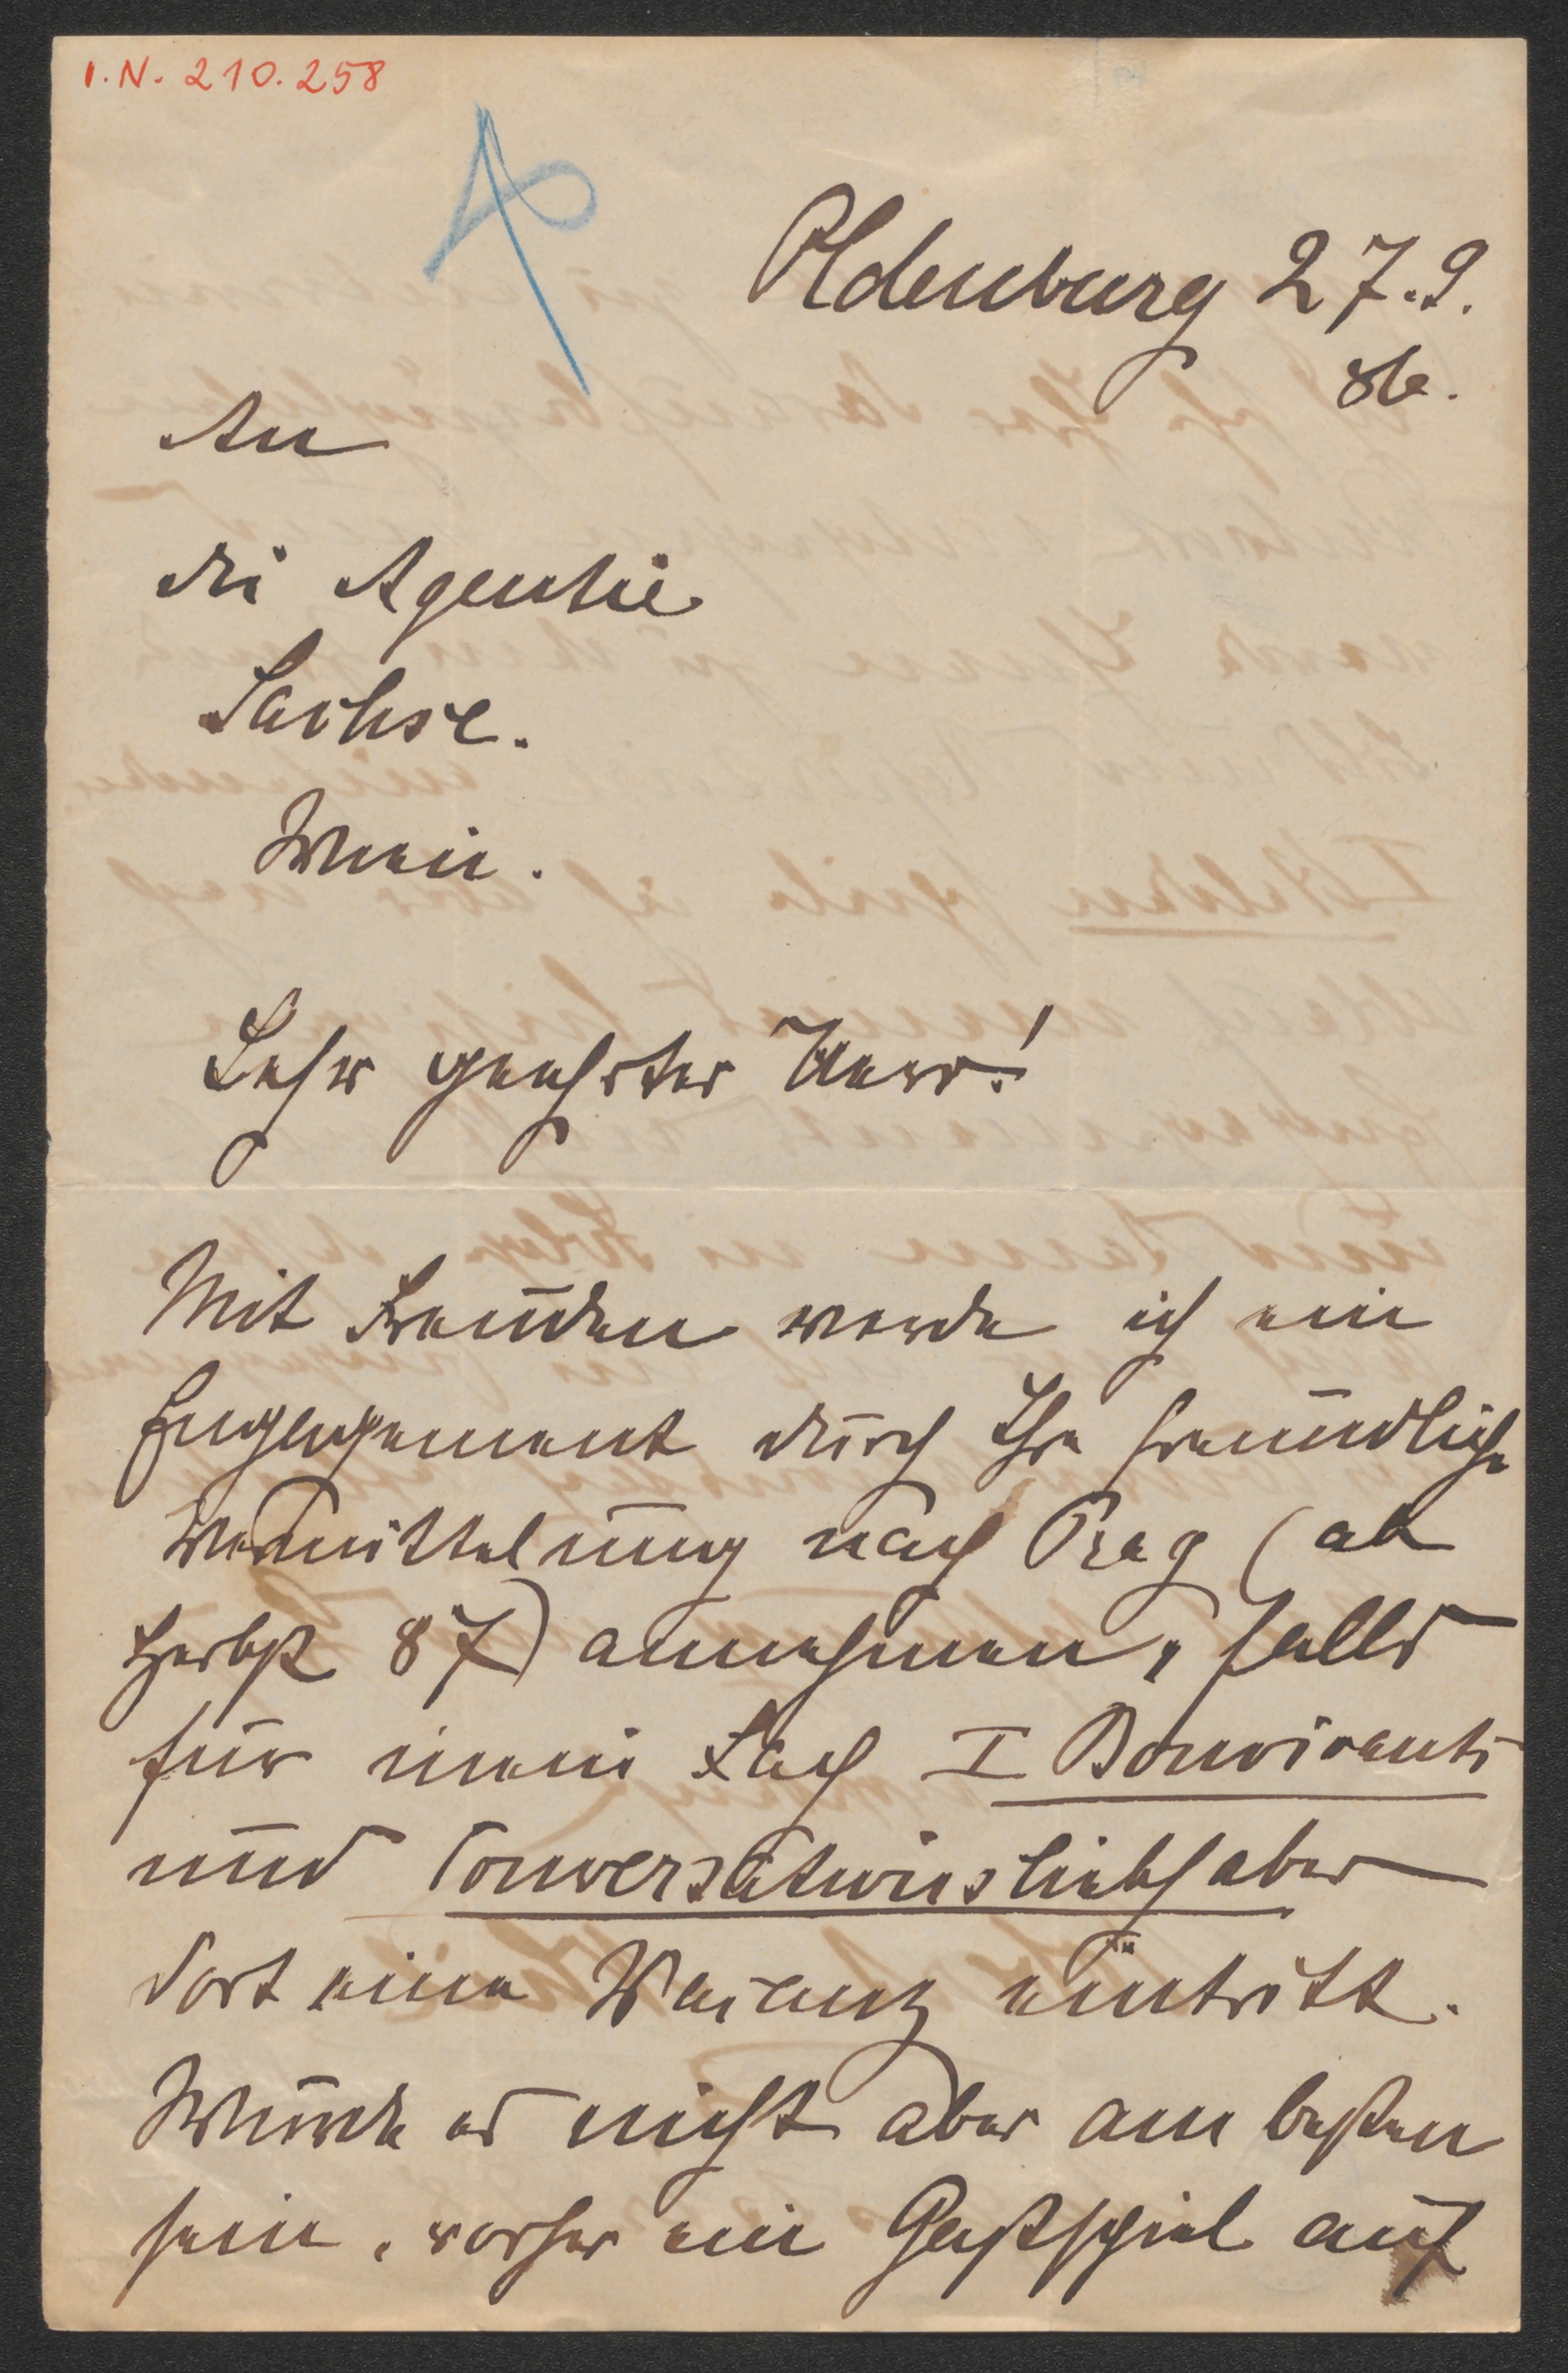 I.N. 210.258
Oldenburg 27.9.
86.
An
die Agentie
Sachse.
Wien.
Sehr geehrter Herr!
Mit Freuden werde ich ein
Engagement durch Ihre freundliche
Vermittelung nach Prag (ab
Herbst 87) annehmen, falls
für mein Fach I Bonvivants
und Conversationsliebhaber
dort eine Vacanz eintritt.
Würde es nicht aber am besten
sein, vorher ein Gastspiel auf